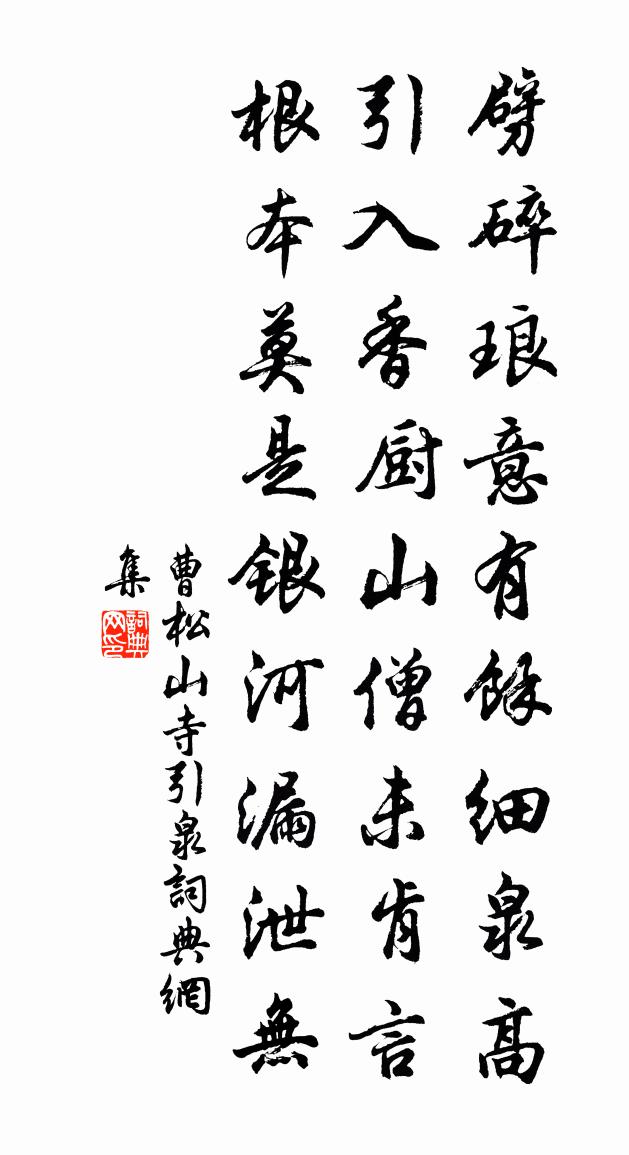 劈碎琅意有餘細泉高
引入香厨山僧未肯言
根本莫是銀河漏泄無
曹松山寺引泉詞典網
集
詞典網印